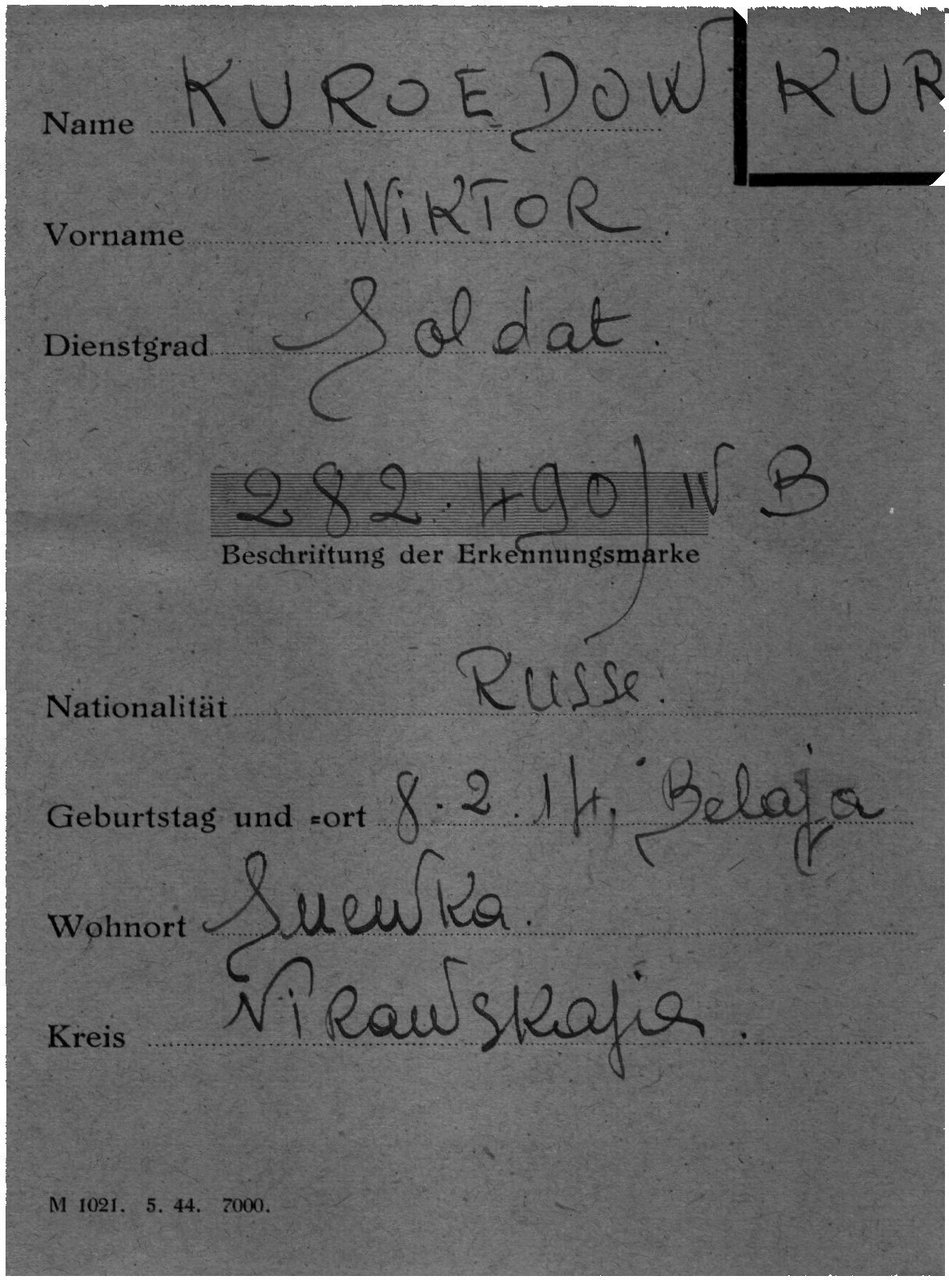 Name KUROEDOW KUR
Vorname WIKTOR.
Dienstgrad Soldat.
282.490/IV B
Beschriftung der Erkennungsmarke
Nationalität Russe.
Geburtstag und =ort 8.2.14, Belaja
Wohnort
Kreis
M 1021. 5. 44. 7000.